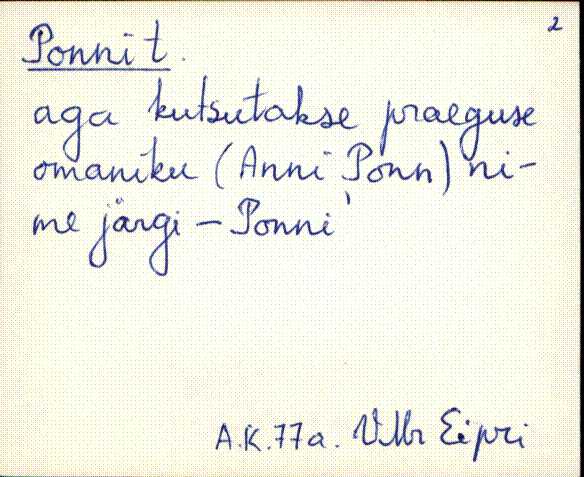 2
Ponni t.
aga kutsutakse praeguse
omaniku (Anni Ponn) ni-
me järgi – Ponni
A.K. 77a. VMr Eipri